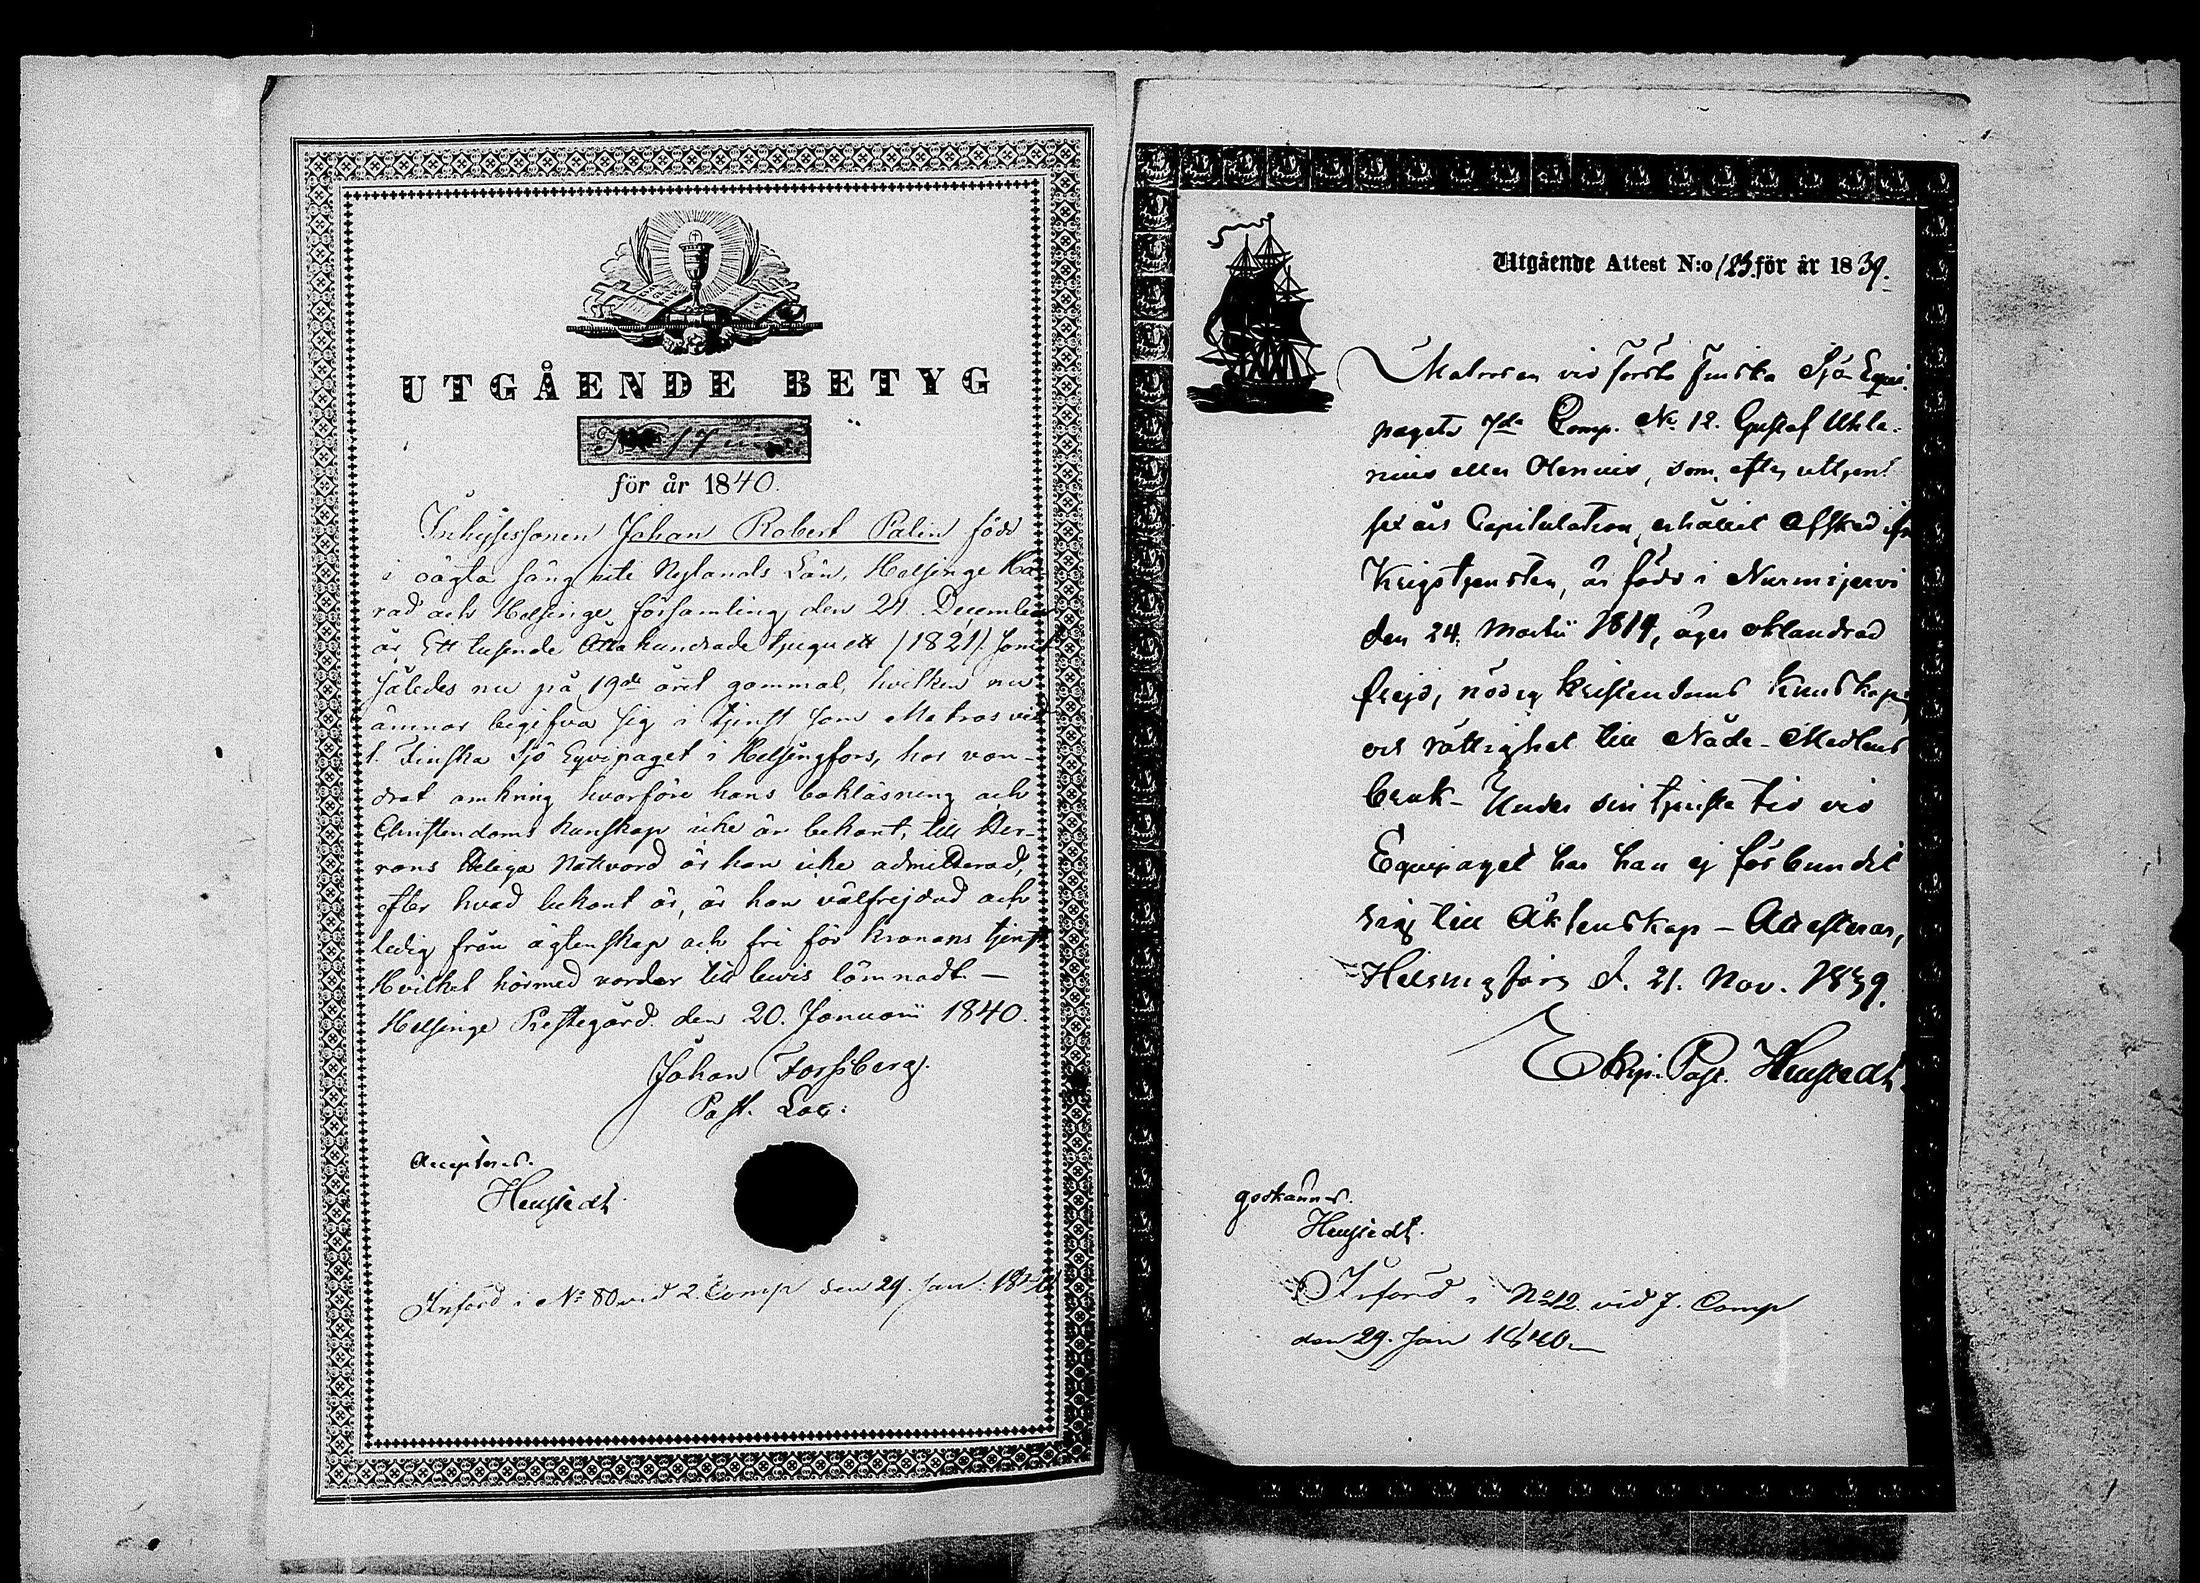 UTGÅENDE BETYG
N:o 17
för år 1840.
Inhysessonen Johan Robert Palin född
i oägta säng uti Nylands Län, Helsinge Hä-
rad och Helsinge församling den 21 December
år Ett tusende Åtta hundrade tjugu ett (1821)
således nu på 19de året gammal, hvilken nu
ämnar begifva sig i tjenst som Matros vid
1. Finska Sjö Eqvipaget i Helsingfors, har van-
drat omkring hvarföre hans bokläsning och
Christendoms kunskap icke är bekant, till Her-
rans Heliga Nattvard är han icke admitterad,
efter hvad bekant är, är han välfrejdad och
ledig från ägtenskap och fri för kronans tjenst
Hvilket härmed varder till bevis lämnadt —
Helsinge Prestegård den 20. Januarii 1840.
Johan Forssberg.
Past. Loc:
Accepteras.
Heustedt
Införd i No 80 vid 2. Comp den 29. Jan: 1840
Utgående Attest N:o 123 för år 1839.
Matrosen vid första finska Sjö Equi-
pagets 7de Comp. No 12. Gustaf Uhle-
nius eller Olenius, som, efter uttjent
sex års Capitulation, erhållit Afsked ifrån
Krigstjensten, är född i Nurmijervi
den 24. Martii 1814, äger oklandrad
frejd, nödig kristendoms kunskap,
och rättighet till Nåde-Medlens
bruk - Under sin tjenste tid vid
Equipaget har han ej förbundit
sig till Äktenskap - Attesteras,
Helsingfors d. 21. Nov. 1839.
Ekip. Past. Heustedt.
godkännes.
Heustedt.
Införd i No 12. vid 7. Comp
den 29. Jan 1840